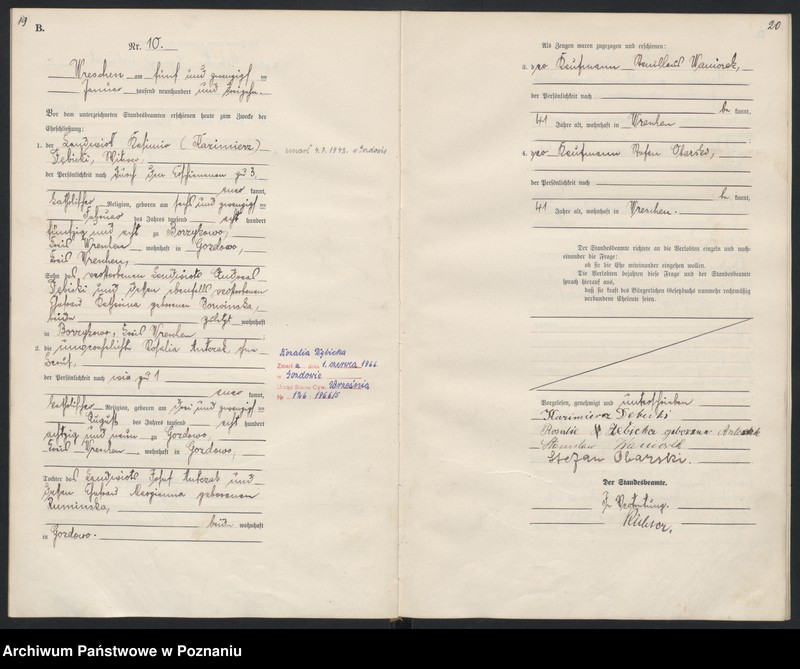 19
B.
Nr. 10.
Wreschen am fünf und zwanzigsten
Januar tausend neunhundert und dreizehn.
Vor dem unterzeichneten Standesbeamten erschienen heute zum Zwecke der
Eheschließung:
1. der Landwirt Kasimir (Kazimierz)
Dębicki, Witwer,
der Persönlichkeit nach durch den Erschienenen zu 3,
kannt,
katholischer Religion, geboren am sechs und zwanzigsten
Februar des Jahres tausend acht hundert
fünfzig und acht zu Borzykowo,
Kreis Wreschen wohnhaft in Gozdowo,
Kreis Wreschen,
Sohn des verstorbenen Landwirts Andreas
Dębicki und dessen ebenfalls verstorbenen
Ehefrau Katharina geborenen
beide zuletzt wohnhaft
in Borzykowo, Kreis Wreschen
2. die unverehelichte Rosalia Antczak, ohne
Beruf,
der Persönlichkeit nach wie zu 1
kannt,
katholischer Religion, geboren am drei und zwanzigsten
August des Jahres tausend acht hundert
achtzig und neun zu Gozdowo,
Kreis Wreschen wohnhaft in Gozdowo,
Tochter des Landwirts Josef Antczak und
dessen Ehefrau Maryanna geborenen
Ruminska,
beide wohnhaft
in Gozdowo.
zmarł 4.9.1942. w Gozdowie
Rozalia Dębicka
Zmarła dnia 1. czerwca 1966
w Gozdowie
Urząd Stanu Cyw. Września
Nr 126
20
Als Zeugen waren zugezogen und erschienen:
3. der Kaufmann Stanislaus Waniorek,
der Persönlichkeit nach
be kannt,
41 Jahre alt, wohnhaft in Wreschen
4. der Kaufmann Stefan Obarski,
der Persönlichkeit nach
be kannt,
41 Jahre alt, wohnhaft in Wreschen.
Der Standesbeamte richtete an die Verlobten einzeln und nach-
einander die Frage:
ob sie die Ehe miteinander eingehen wollen.
Die Verlobten bejahten diese Frage und der Standesbeamte
sprach hierauf aus,
daß sie kraft des Bürgerlichen Gesetzbuchs nunmehr rechtmäßig
verbundene Eheleute seien.
Vorgelesen, genehmigt und unterschrieben
Kazimierz Dębicki
Rosalie Dębicka geborene Antczak
Stanisław Waniorek
Stefan Obarski.
Der Standesbeamte.
In Vertretung.
Archiwum Państwowe w Poznaniu